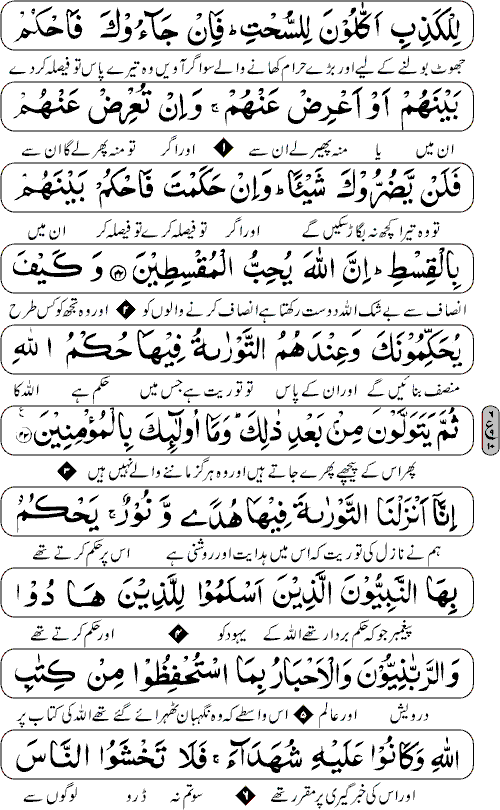 لِلۡكَذِبِ اَكّٰلُوۡنَ لِلسُّحۡتِ ؕ فَاِنۡ جَآءُوۡكَ فَاحۡكُمۡ
جھوٹ بولنے کے لیے اور بڑے حرام کھانے والے سو اگر آویں وہ تیرے پاس تو فیصلہ کر دے
بَيۡنَهُمۡ اَوۡ اَعۡرِضۡ عَنۡهُمۡ ۚ وَاِنۡ تُعۡرِضۡ عَنۡهُمۡ
ان میں یا منہ پھیر لے ان سے ۱ اور اگر تو منہ پھر لے گا ان سے
فَلَنۡ يَّضُرُّوۡكَ شَيۡـًٔا ؕ وَاِنۡ حَكَمۡتَ فَاحۡكُمۡ بَيۡنَهُمۡ
تو وہ تیرا کچھ نہ بگاڑ سکیں گے اور اگر تو فیصلہ کرے تو فیصلہ کر ان میں
بِالۡقِسۡطِ ؕ اِنَّ اللّٰهَ يُحِبُّ الۡمُقۡسِطِيۡنَ ﴿۴۲﴾ وَ كَيۡفَ
انصاف سے بے شک اللہ دوست رکھتا ہے انصاف کرنے والوں کو ۲ اور وہ تجھ کو کس طرح
يُحَكِّمُوۡنَكَ وَعِنۡدَهُمُ التَّوۡرٰٮةُ فِيۡهَا حُكۡمُ اللّٰهِ
منصف بنائیں گے اور ان کے پاس تو توریت ہے جس میں حکم ہے اللہ کا
ثُمَّ يَتَوَلَّوۡنَ مِنۡۢ بَعۡدِ ذٰلِكَ ؕ وَمَاۤ اُولٰٓٮِٕكَ بِالۡمُؤۡمِنِيۡنَ ﴿۴۳﴾ ع
پھر اس کے پیچھے پھرے جاتے ہیں اور وہ ہرگز ماننے والے نہیں ہیں ۳
اِنَّاۤ اَنۡزَلۡنَا التَّوۡرٰٮةَ فِيۡهَا هُدًى وَّ نُوۡرٌ ۚ يَحۡكُمُ
ہم نے نازل کی توریت کہ اس میں ہدایت اور روشنی ہے اس پر حکم کرتے تھے
بِهَا النَّبِيُّوۡنَ الَّذِيۡنَ اَسۡلَمُوۡا لِلَّذِيۡنَ هَادُوۡا
پیغمبر جو کہ حکم بردار تھے اللہ کے یہود کو ۴ اور حکم کرتے تھے
وَالرَّبَّانِيُّوۡنَ وَالۡاَحۡبَارُ بِمَا اسۡتُحۡفِظُوۡا مِنۡ كِتٰبِ
درویش اور عالم ۵ اس واسطے کہ وہ نگہبان ٹھہرائے گئے تھے اللہ کی کتاب پر
اللّٰهِ وَكَانُوۡا عَلَيۡهِ شُهَدَآءَ ۚ فَلَا تَخۡشَوُا النَّاسَ
اور اس کی خبر گیری پر مقرر تھے ۶ سو تم نہ ڈرو لوگوں سے